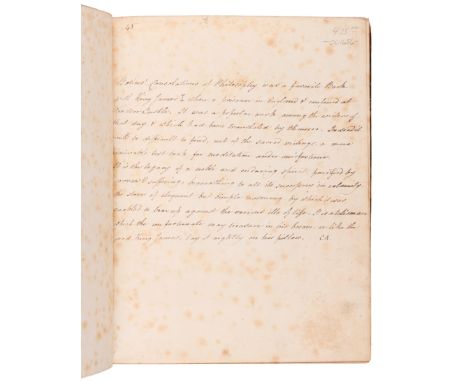 45
Boetius' Consolations of Philosophy was a favorite Book
with King James I when a prisoner in England & confined at
Windsor Castle. It was a popular work among the writers of
that day & which had been translated by Chaucer. Indeed it
will be difficult to find, out of the sacred writings, a more
admirable text book for meditation under misfortune.
It is the legacy of a noble and enduring spirit, purified by
sorrow & suffering, bequeathing to all its successors in calamity
the stores of eloquent but simple reasoning by which it was
enabled to bear up against the various ills of life. It is a talisman
which the unfortunate may treasure in his bosom or like the
good King James, lay it nightly on his pillow. CR